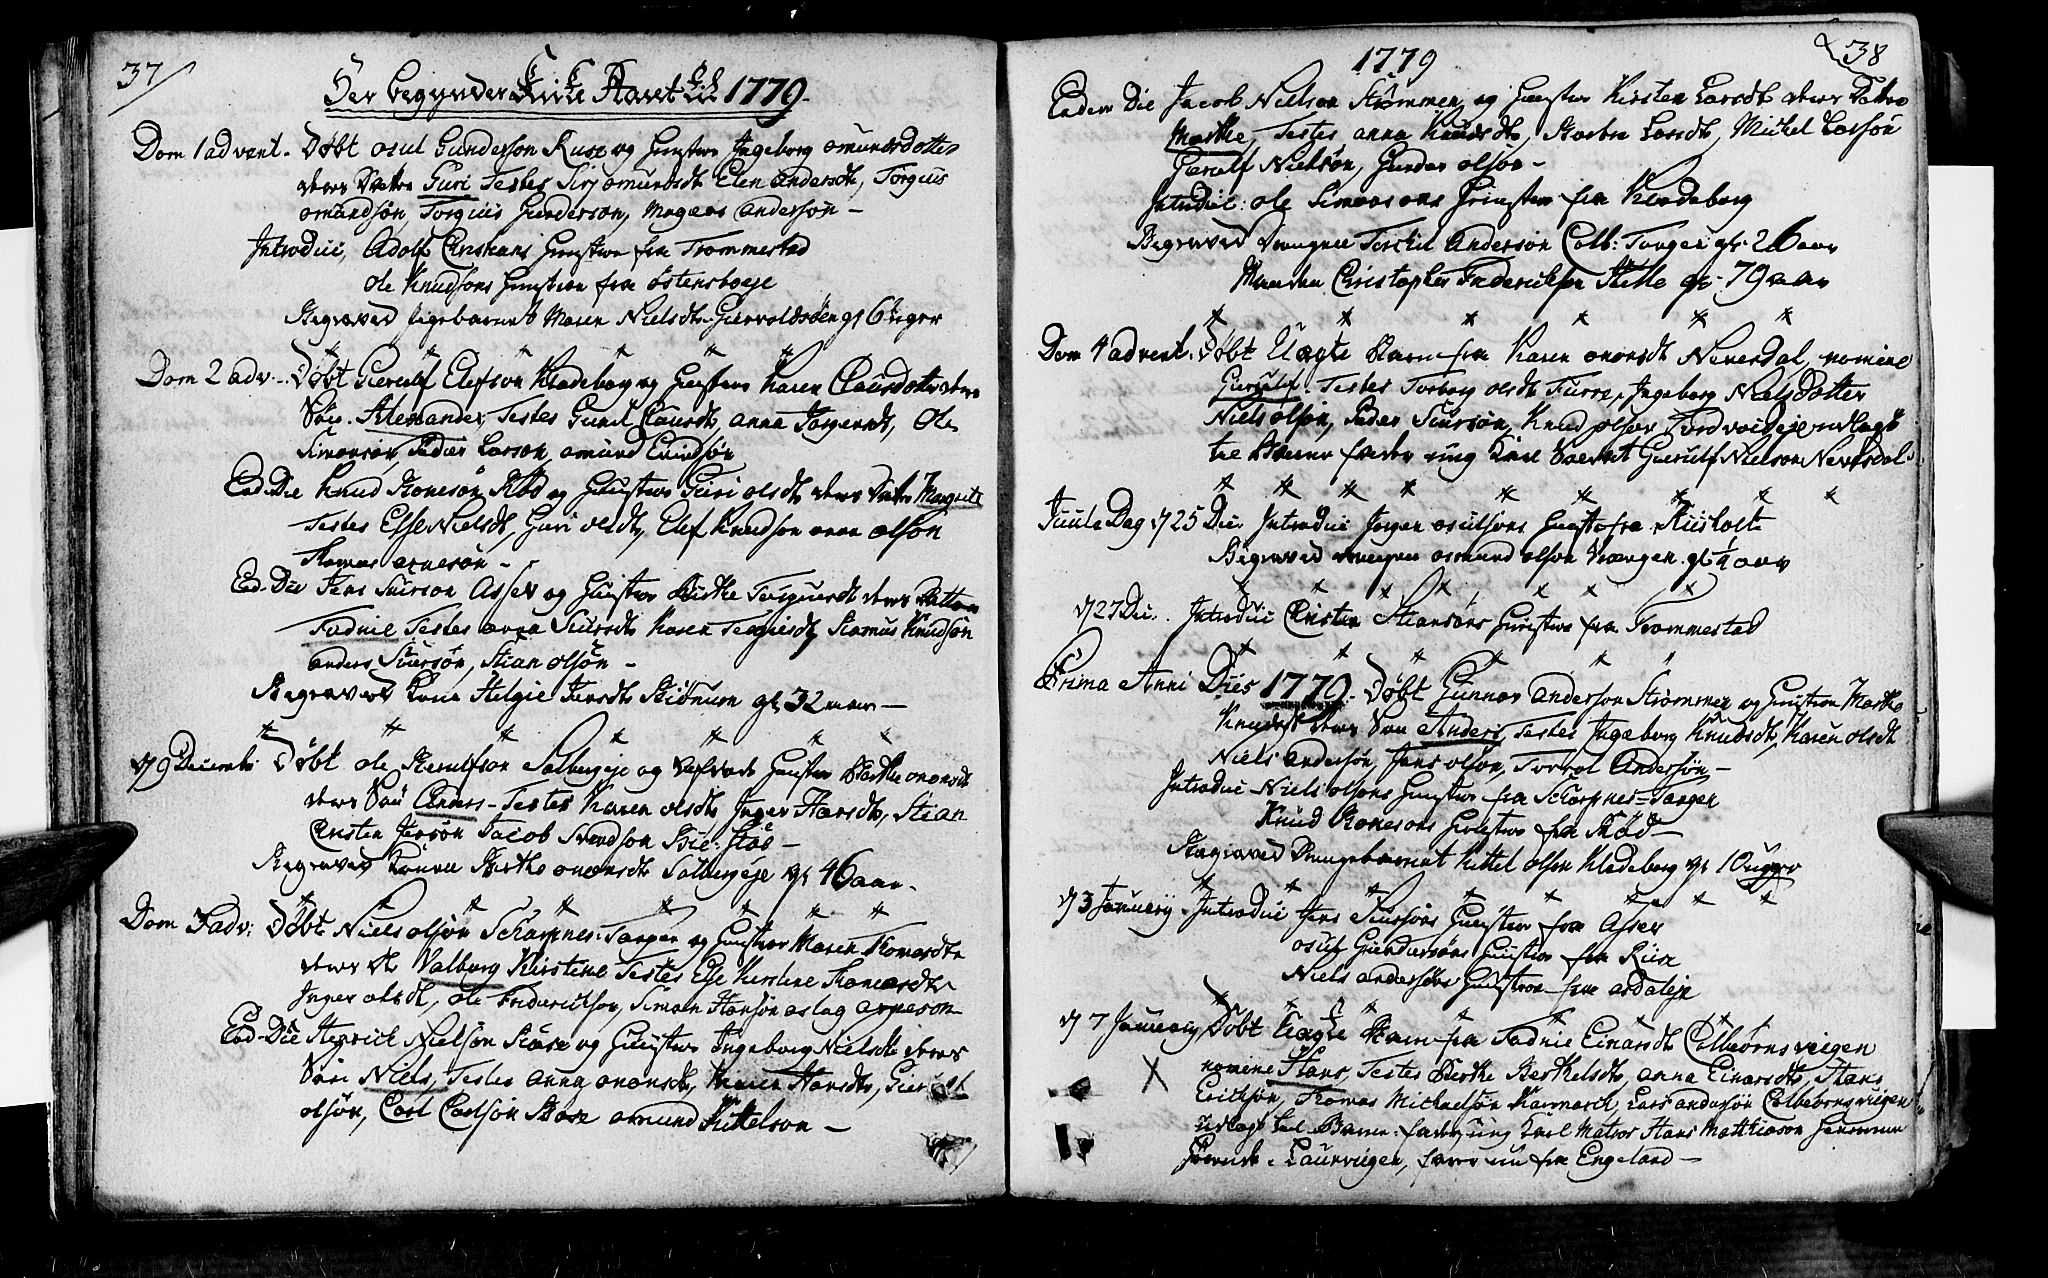 37
Her begynder Kirke Aaret til 1779.
Dom 1 advent. Døbt osul Gunderson Ruse og Hustroe Ingeborg omundsdotter
deres Datter Guri Testes Siri omundsdt Elen andersdt, Torgius
omundsøn, Torgius Gunderson, Magnus anderssøn –
Introduc, Adolf Christians Hustroe fra Trommestad
ole Knudsons Hustroe fra østensboeje
Begraved pigebarnet Maren Nielsdt Giervoldsøen gl 6 uger
Dom 2 adv. Døbt Gierulf Elefsøn Kladeborg og Hustroe Karen Clausdotter deres
Søn Alexander, Testes Gunil Clausdt, anna Jørgensdt, Ole
Simonsøn, Peder Larson, omund Evindsøn
Ead. Die Knud Bonesøn Rød og Hustroe Guri olsdt deres Datter Margrete
Testes Else Nielsdt, Guri olsdt, Elef Knudson, oven olson
Tomas arnesøn –
Ed. Die Jens Siurson Asser og Hustroe Birthe Torgiusdt deres Datter
Todnie Testes anna Siursdt Karen Torgiusdt, Rasmus Knudsøn
anders Siursøn, Stian olsøn –
Begraved Kone Helgie Jensdt Biønnum gl. 32 aar –
d 9 Decembr Døbt ole Gerulfson Solbergeje og Hustroe Berthe ononsdt
deres Søn Anders – Testes Karen olsdt, Inger Hansdt, Stian
Cristen Jensøn Jacob Svendson Bie: Støs –
Begraved Konen Berthe ononsdt Solbergeje gl 46 aar –
Dom 3 adv: Døbt Niels olsøn Scharpnes-Tangen og Hustroe Maren Tomasdt
deres dt Valborg Kirstine Testes Else Kirstine Tomasdt
Inger olsdt, ole Friderichson, Simon Hansøn aslag arneson
Ead. Die Henrich Nielsøn Bøse og Hustroe Ingeborg Nielsdt deres
Søn Niels, Testes anna ononsdt, Karen Hansdt, Gierulf
olsøn, Carl Carlsøn Bose omund Kittelson –
38
1779
Eadem Die Jacob Nielson Strømmen og Hustroe Kirsten Larsdt deres Datter
Marthe, Testes anna Knudsdt, Barbra Larsdt, Michel Larssøn
Gierulf Nielsøn, Gunder olsøn –
Introduc: ole Simonsons Hustroe fra Kladeborg
Begraved Drengen Terchil Anderson Colb: Tangen gl. 26 aar
Manden Christopher Frederichsen Hille gl – 79 aar
Dom 4 advent. Døbt Uægte Barn fra Karen ononsdt Neversdal, nomine
Gierulf. Testes Torborg olsdt Furre, Ingeborg Nielsdotter
Niels olsøn, Peder Siursøn, Knud olson Tordvoldeje udlagt
til Barne fader ung Karl Soldat Gierulf Nielson Neversdal
Juule Dag d 25 Dec. Introduc Jørgen osulsøns Hustroe fra Kiislost
Begraved drengen osmund olson Kiørgen gl ½ aar
d 27 Dec. Introduc Cristen Stiansøns Hustroe fra Trommestad
Prima Anni Dies 1779. Døbt Gunnar anderson Strømmen og Hustroe Marthe
Knudsdt deres Søn Anders Testes Ingeborg Knudsdt, Karen olsdt
Niels andersøn, Jens olsøn, Torrol Andersøn –
Introduc Niels olsøns Hustroe fra Scharpnes-Tangen
Knud Bonesøns Hustroe fra Rød –
Begraved Drengebarnet Kittel olsen Kladeborg gl 10 uger
d 3 January. Introduc Jens Siursøns Hustroe fra Asser
osul Gundersøns Hustroe fra Ruse
Niels andersøns Hustroe fra asdaleje
d 7 January Døbt Uægte Barn fra Todnie Einarsdt Colbiørnsviigen
X nomine Hans, Testes Berthe Berthelsdt, anna Einarsdt, Hans
Erichsøn, Thomas Michaelsøn Kammarch, Lars andersøn Colbiørnsviigen
udlagt til Barnefader ung Karl Matros Hans Matthiason
Laurviigen, kom nu fra Engeland –